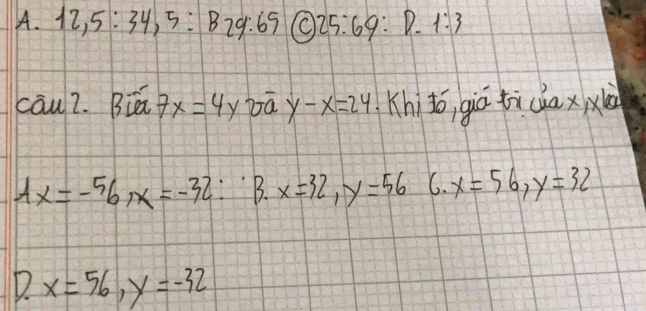 A. 12,5:34,5: B 29:65 C 25:69: D. 1:3
câu 2. Biết 7x=4y và y-x=24. Khi đó, giá trị của x, x là
A x=-56, x=-32: B. x=32, y=56 C. x=56, y=32
D. x=56, y=-32